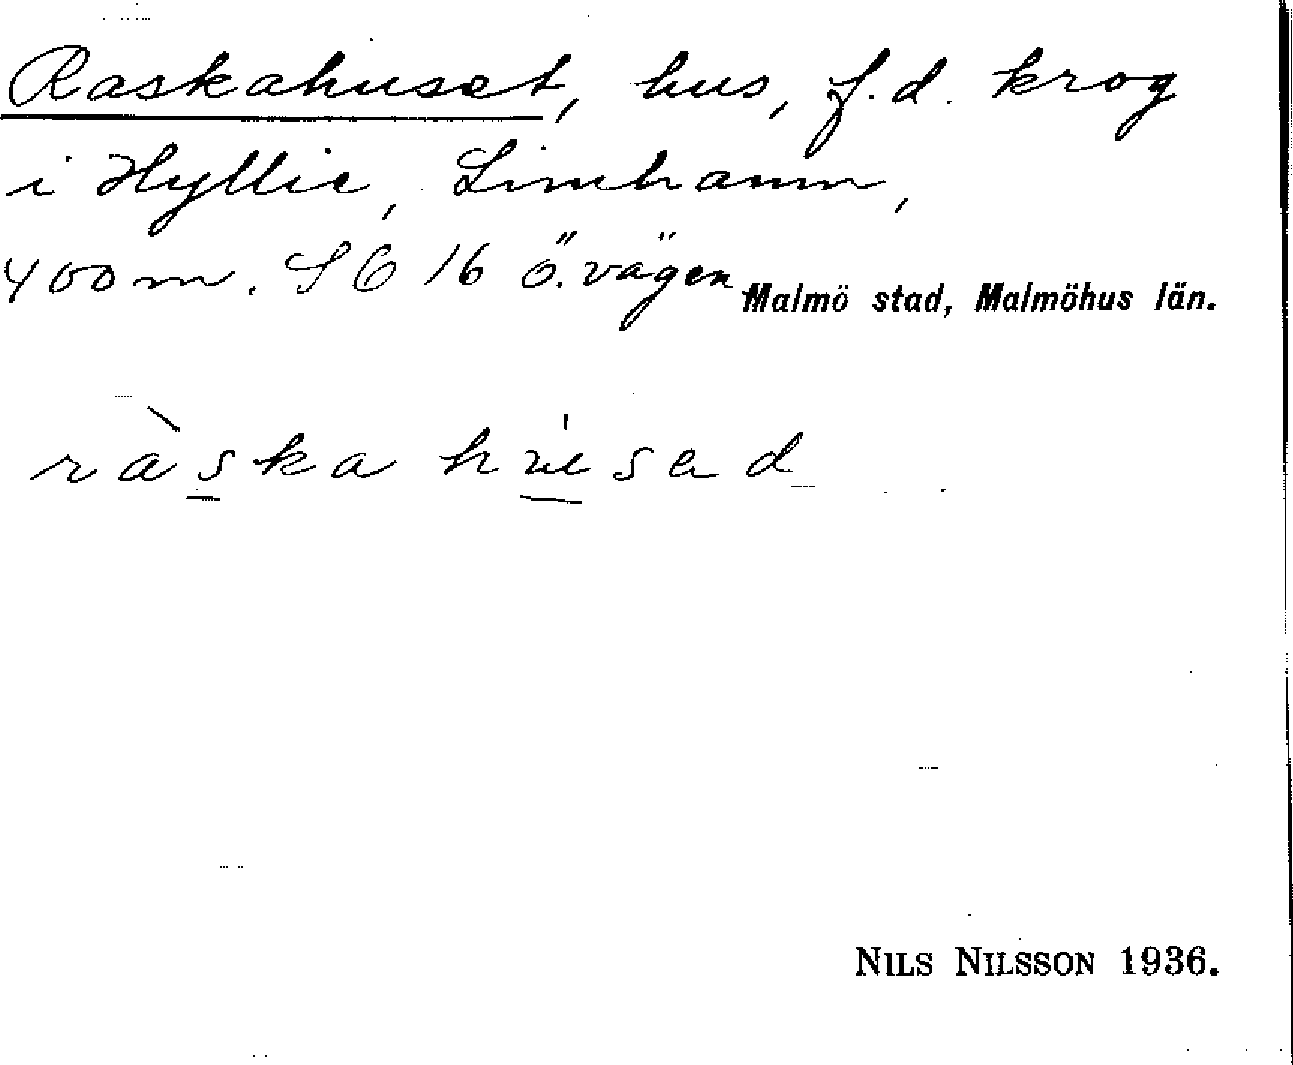 Raskahuset, hus, f.d. krog
i Hyllie, Limhamn,
400 m. SO 16 ö. vägen
Malmö stad, Malmöhus län.
ràska húsad
NILS NILSSON 1936.